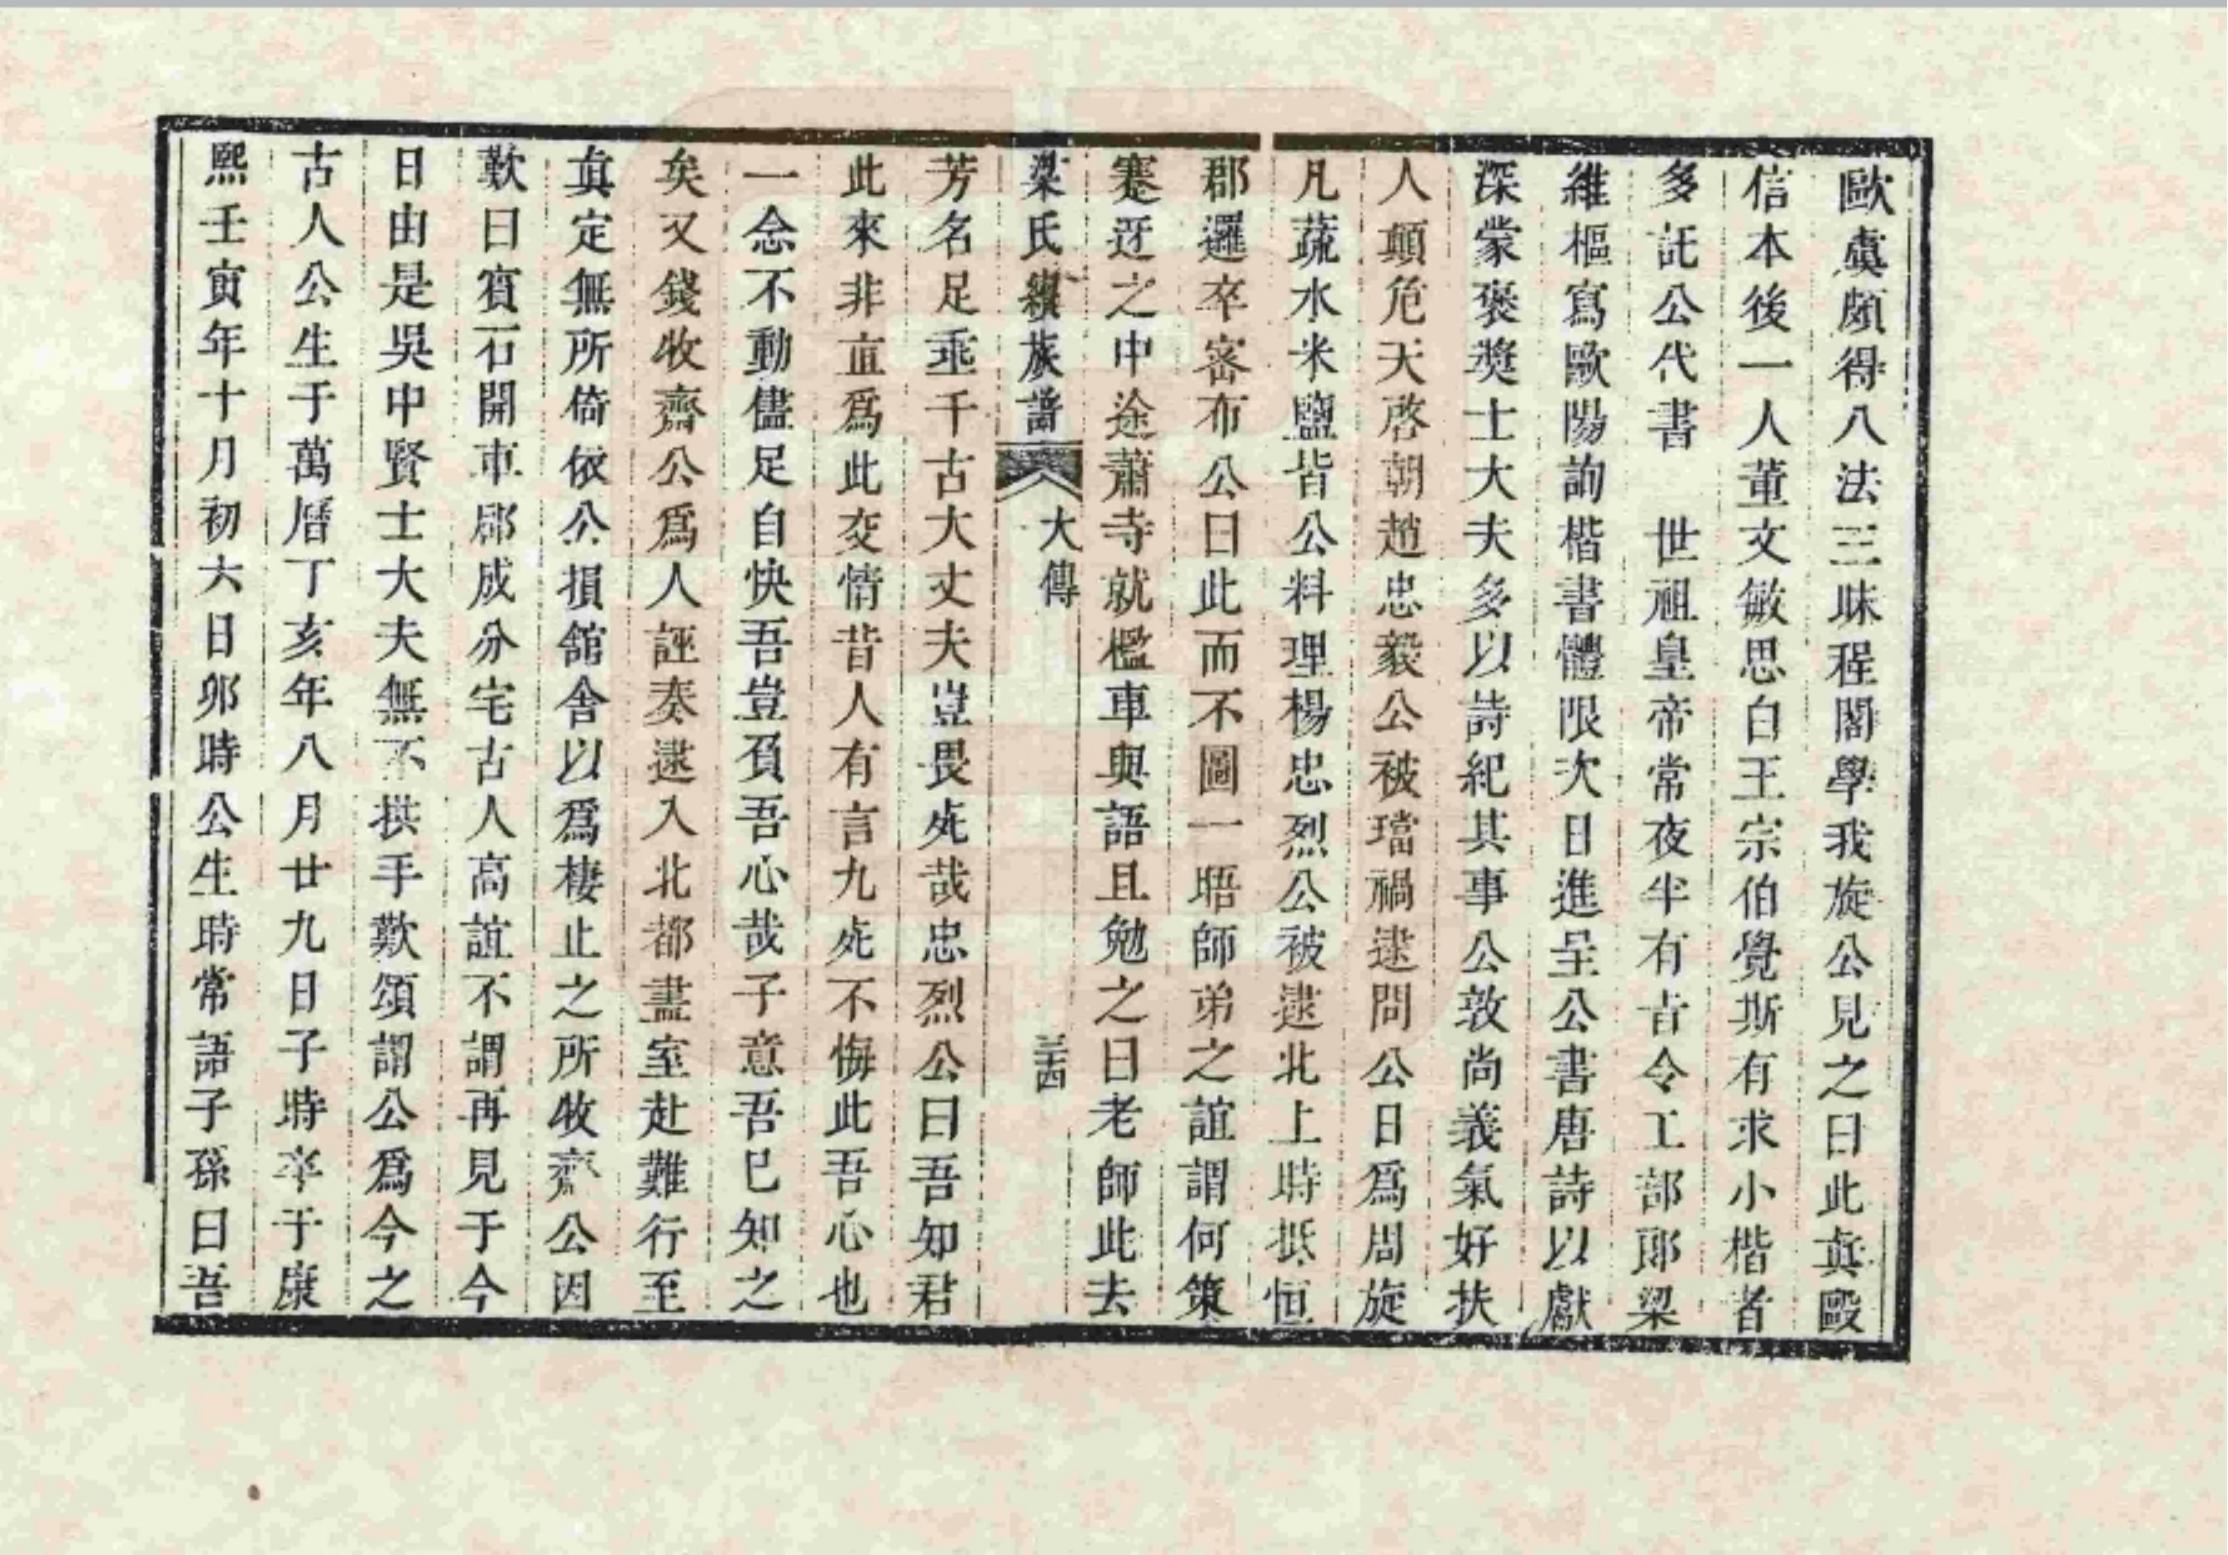 歐虞頗得八法三昧程閣學我旋公見之曰此眞毆
信本後一人董文敏思白王宗伯覺斯有求小楷者
多託公代書　世祖皇帝常夜半有旨令工部郎梁
維樞寫歐陽詢楷書體限次日進呈公書唐詩以獻
深蒙褒奬士大夫多以詩紀其事公敦尚義氣好扶
人顛危天啓朝趙忠毅公被璫禍逮問公日爲周旋
凡蔬水米鹽皆公料理楊忠烈公被逮北上時抵恒
郡邏卒密布公曰此而不圖一晤師弟之誼謂何策
蹇迓之中途蕭寺就檻車與語且勉之曰老師此去
梁氏續族譜　大傳　三十四
芳名足乖千古大丈夫豈畏死哉忠烈公曰吾知君
此來非直爲此交情昔人有言九死不悔此吾心也
一念不動儘足自快吾豈負吾心哉子意吾已知之
矣又錢牧齋公爲人誣奏逮入北都盡室赴難行至
眞定無所倚依公損舘舍以爲棲止之所牧齋公因
歎曰賓石開車郈成分宅古人高誼不謂再見于今
日由是吳中賢士大夫無不拱手歎頌謂公爲今之
古人公生于萬曆丁亥年八月廿九日子時卒于康
熙壬寅年十月初六日卯時公生時常語子孫曰吾